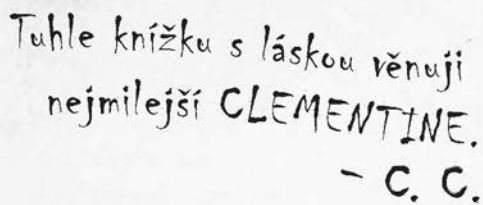 Tuhle knížku s láskou věnuji
nejmilejší CLEMENTINE.
– C. C.